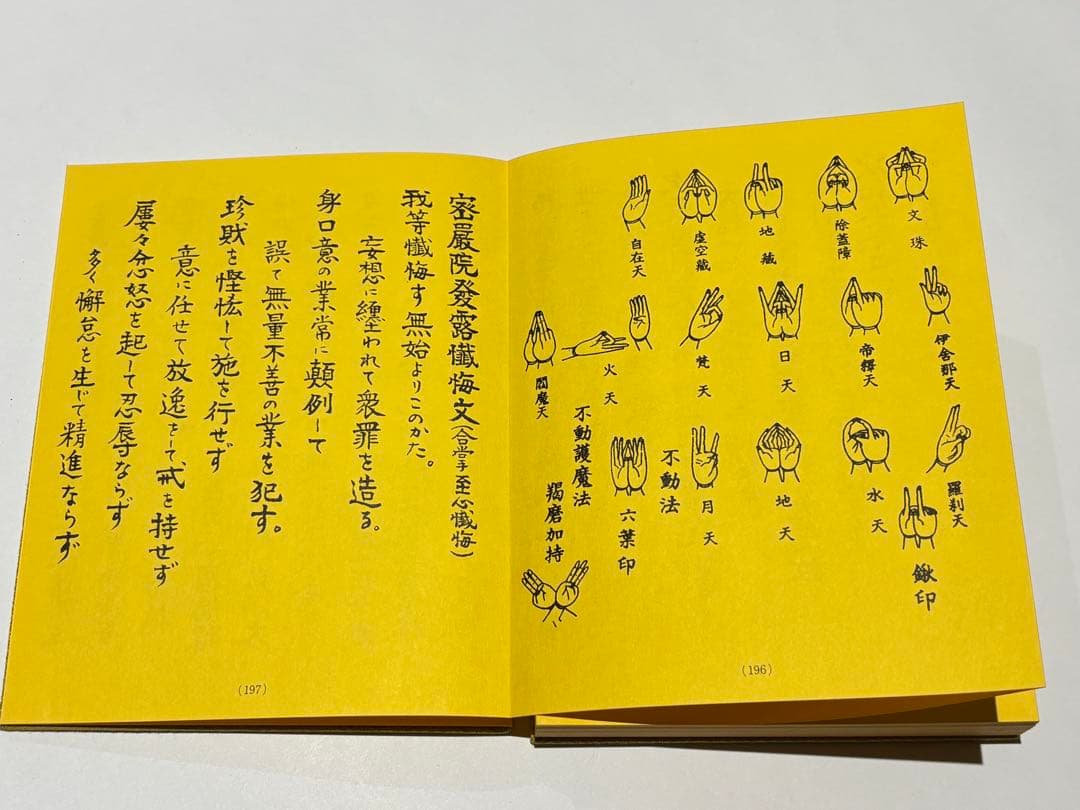 文殊
除蓋障
地藏
虚空藏
自在天
伊舎那天
帝釋天
日天
梵天
火天
閻魔天
羅刹天
水天
地天
月天
鍬印
不動法
六葉印
不動護魔法
羯磨加持
(196)
密嚴院發露懺悔文(合掌至心懺悔)
我等懺悔す無始よりこのかた。
妄想に纏われて衆罪を造る。
身口意の業常に顛例して
誤て無量不善の業を犯す。
珍財を慳悋して施を行せず
意に任せて放逸をして、戒を持せず
屡々忿怒を起して忍辱ならず
多く懈怠を生じて精進ならず
(197)